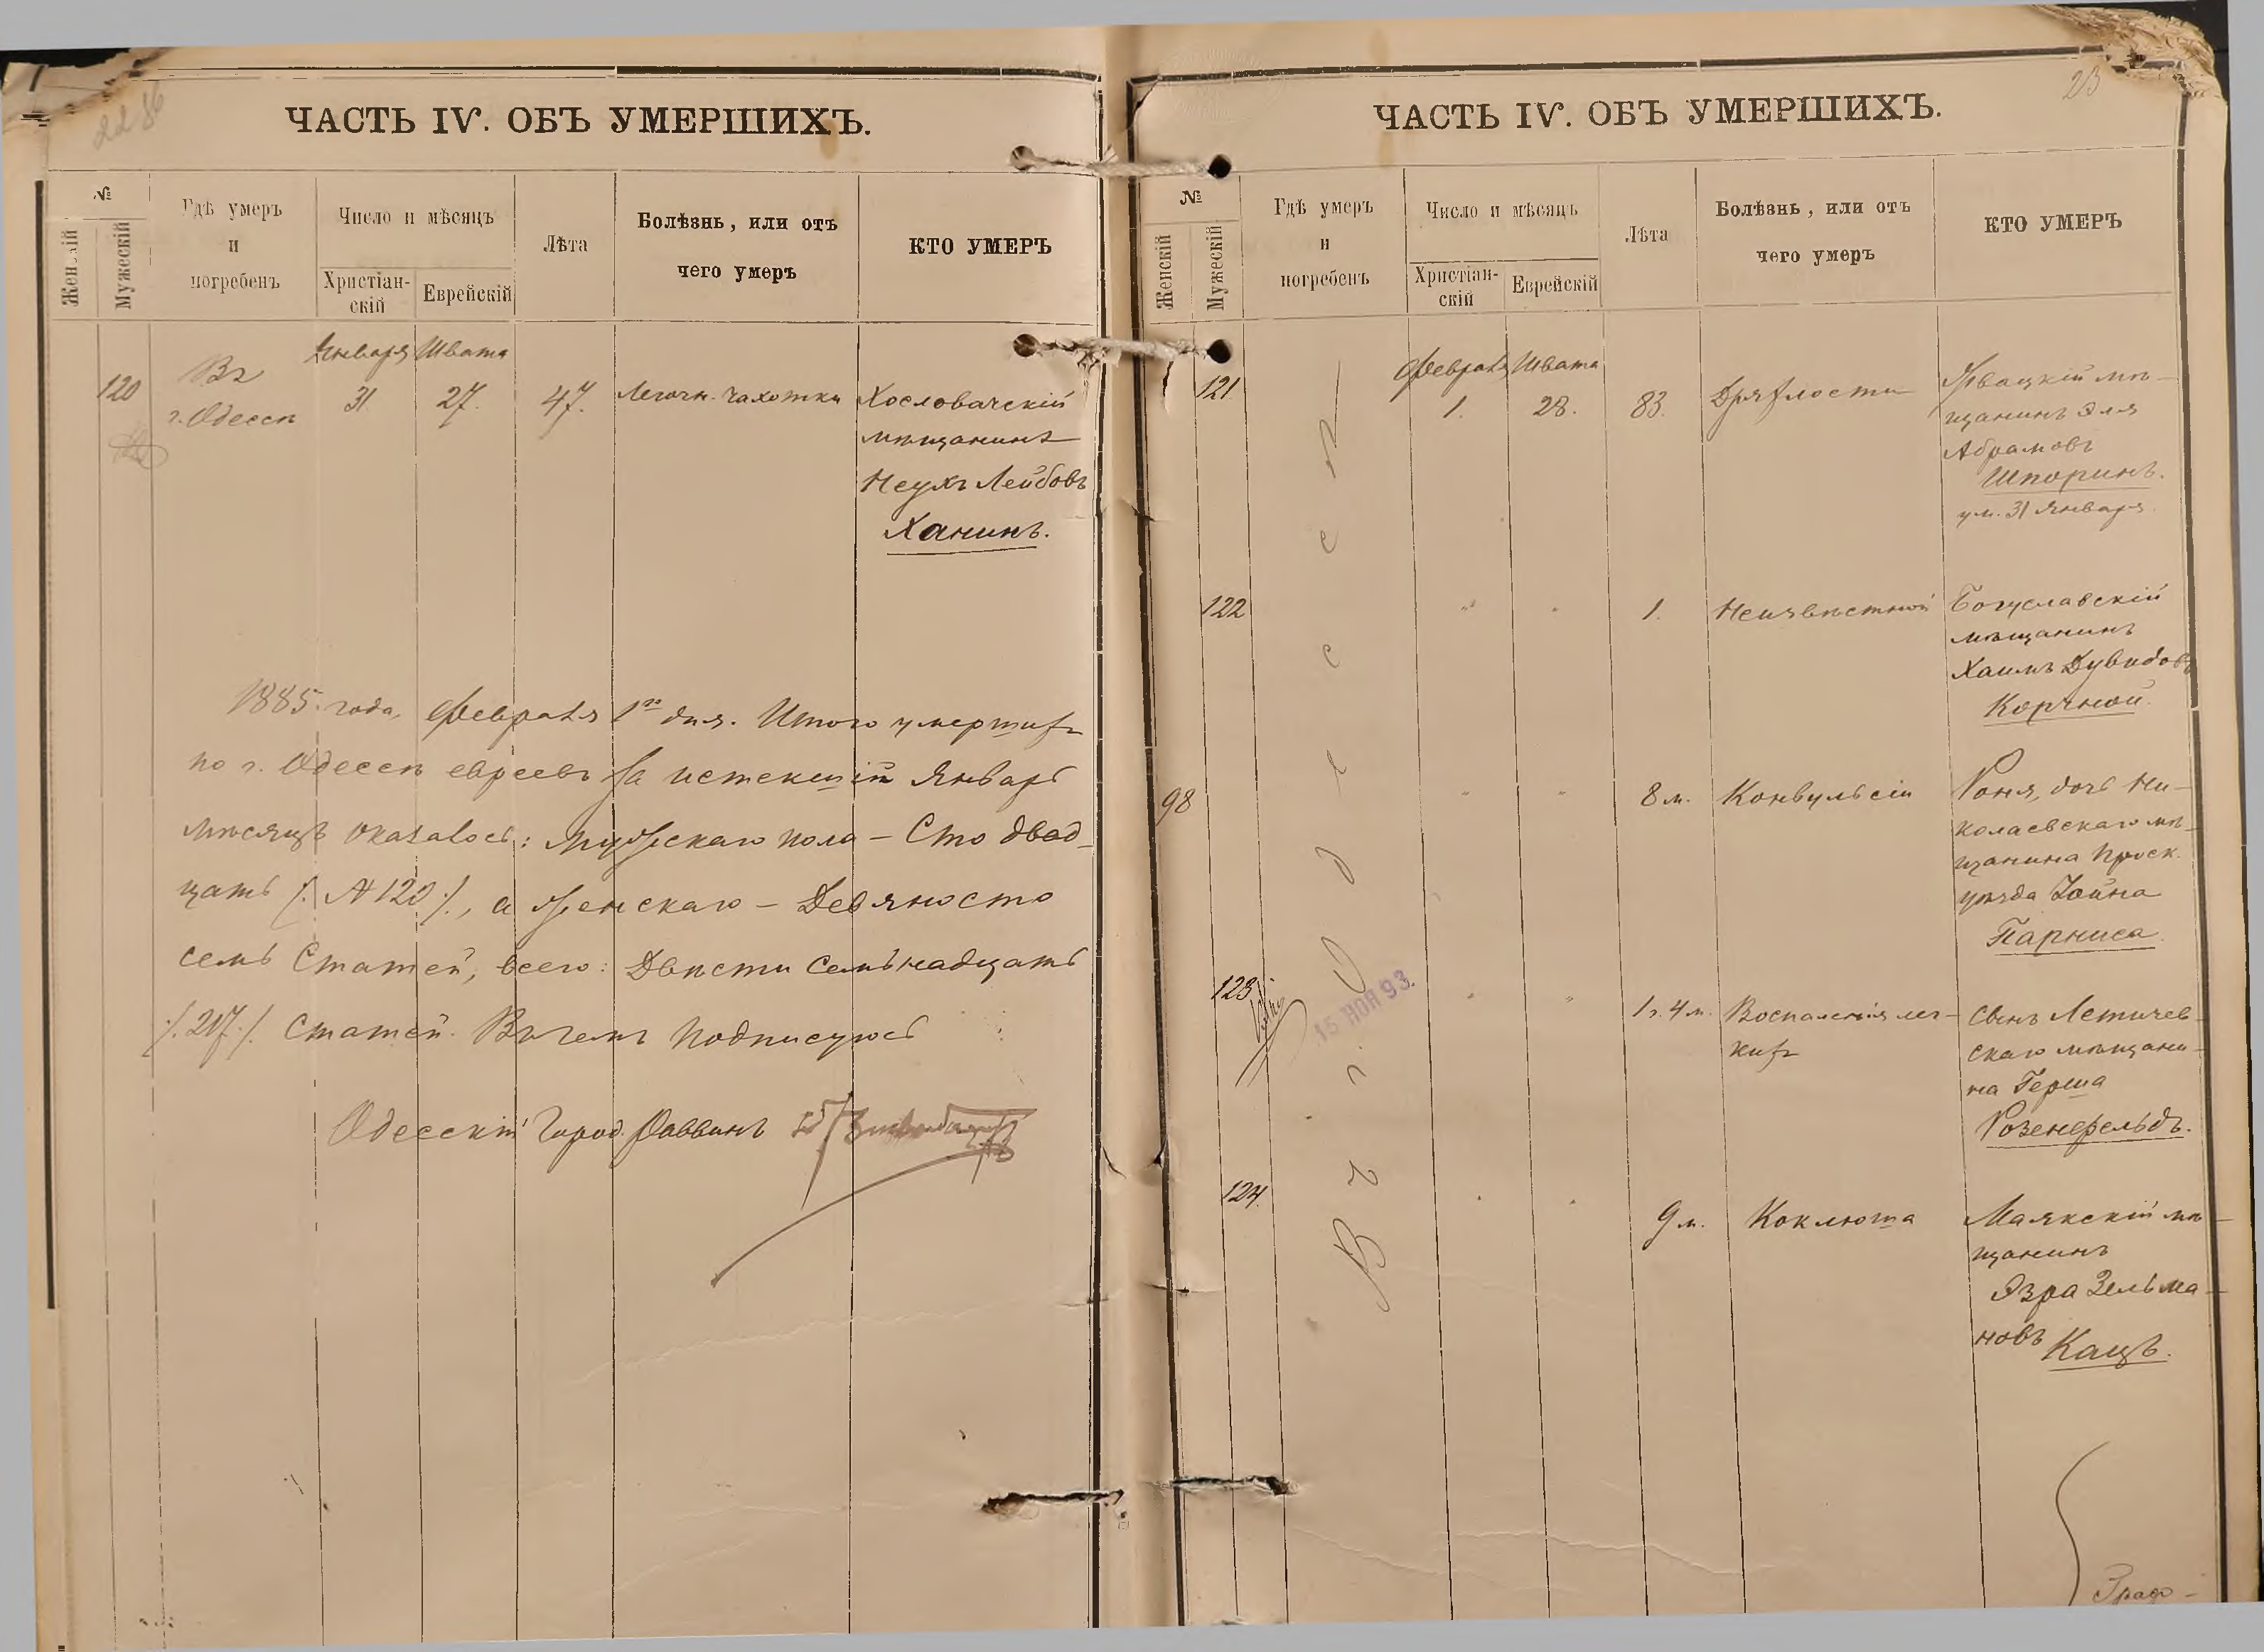 22 86
ЧАСТЬ IV. ОБЪ УМЕРШИХЪ.
№
Женскій
Мужескій
Гдѣ умеръ
и
погребенъ
Число и мѣсяцъ
Христіан-
скій
Еврейскій
Лѣта
Болѣзнь, или отъ
чего умеръ
КТО УМЕРЪ
Января Швата
120 Въ 31 27. 47. Легочн. Чахотки Хославачскій
г. Одессѣ
мѣщанинъ
Неухъ Лейбовъ
Ханинъ.
1885. года, Февраля 1го дня. Итого умершихъ
по г. Одессѣ евреевъ за истекшій Январь
мѣсяцъ оказалось: мужескаго пола – Сто двад-
цать /. № 120 ./, а женскаго – Девяносто
семь Статей, всего: Двѣсти Семьнадцать
/. 217 ./ Статей. Въ чемъ подписуюсь
Одесскій Город. Раввинъ
23
ЧАСТЬ IV. ОБЪ УМЕРШИХЪ.
№
Женскій
Мужескій
Гдѣ умеръ
и
погребенъ
Число и мѣсяцъ
Христіан-
скій
Еврейскій
Лѣта
Болѣзнь, или отъ
чего умеръ
КТО УМЕРЪ
Въ г. Одессѣ
Февраля Швата
121 1. 28. 83. Дряхлости мѣ-
щанинъ Эля
Абрамовъ
Шпоринъ.
ум. 31 Января.
122 " " 1. Неизвѣстной Богуславскій
мѣщанинъ
Хаимъ Дувидовъ
Корчной.
98 " " 8 м. Конвульсіи Роня, дочь Ни-
колаевскаго мѣ-
щанина Проск.
уѣзда Іойна
Парниса.
123 " " 1 г. 4 м. Воспаленія лег- Сынъ Летичев-
кихъ скаго мѣщани-
на Герша
Розенфельдъ.
15 НОЯ 93.
124. " " 9 м. Коклюша Маякскій мѣ-
щанинъ
Эзра Зельма-
новъ Кацъ.